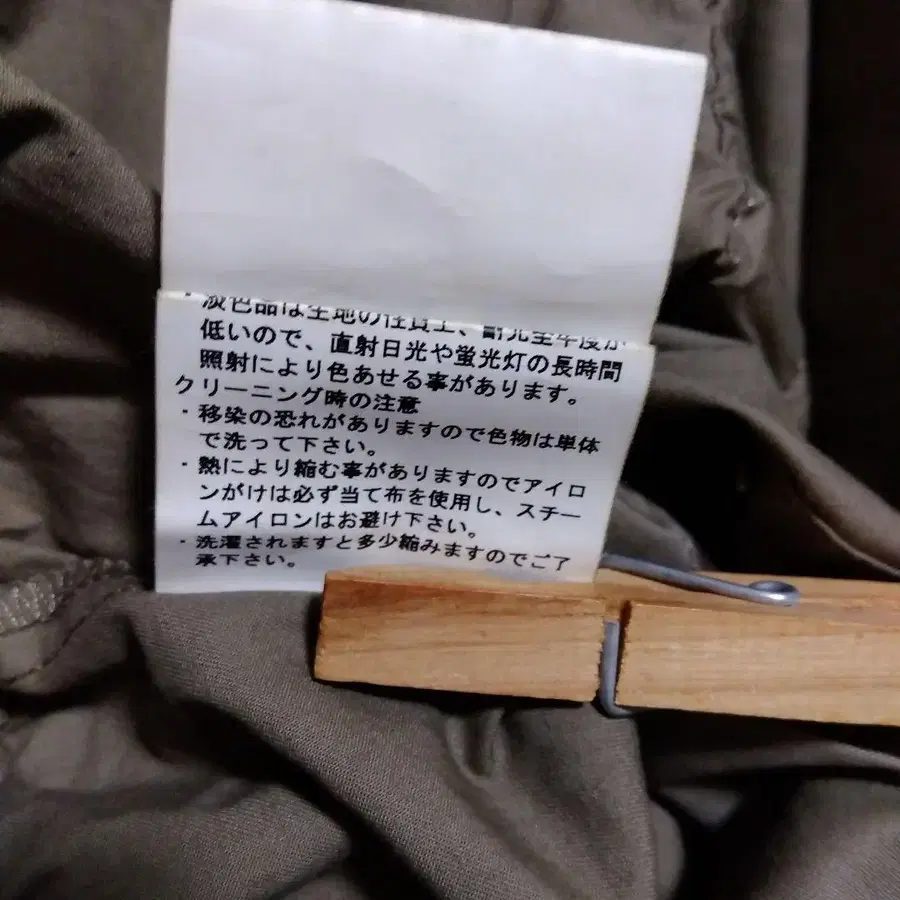 ・淡色品は生地の性質上、耐光堅牢度が
低いので、直射日光や蛍光灯の長時間
照射により色あせる事があります。
クリーニング時の注意
・移染の恐れがありますので色物は単体
で洗って下さい。
・熱により縮む事がありますのでアイロ
ンがけは必ず当て布を使用し、スチー
ムアイロンはお避け下さい。
・洗濯されますと多少縮みますのでご了
承下さい。